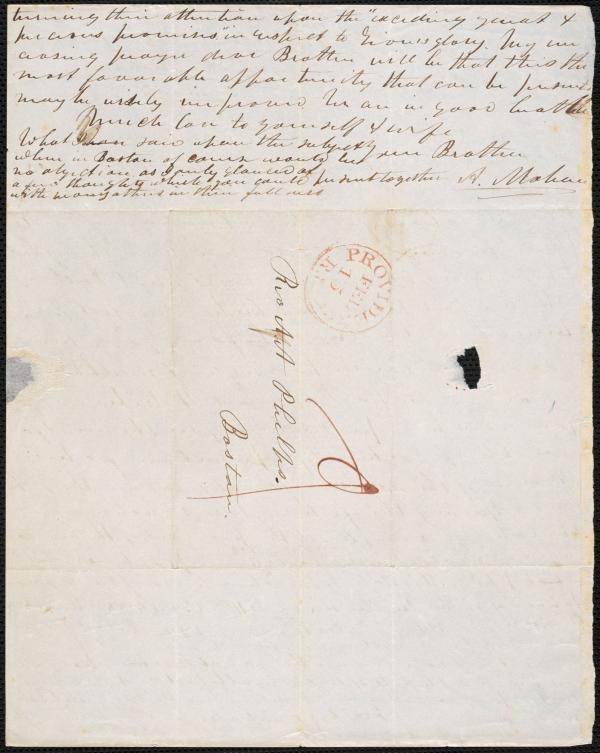 turning their attention upon the "exceeding great &
precious promises in respect to Zion's glory. My un
ceasing prayer dear Brother will be that this the
most favorable opportunity that can be present
may be wisely improved We are in good health
Much love to yourself & wife
What I have said upon the subject
when in Boston of course would be your Brother
no objection, as I only glanced at
a few thoughts which you could present together A. Mahan
with many others in their fullness
PROVID R.I.
FEB
15
Rev A A Phelps.
Boston.